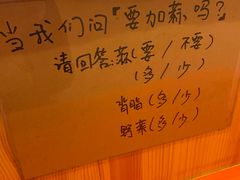 当我们问『要加蒜吗?
请回答:蒜(要/不要)
(多/少)
背脂(多/少)
野菜(多/少)